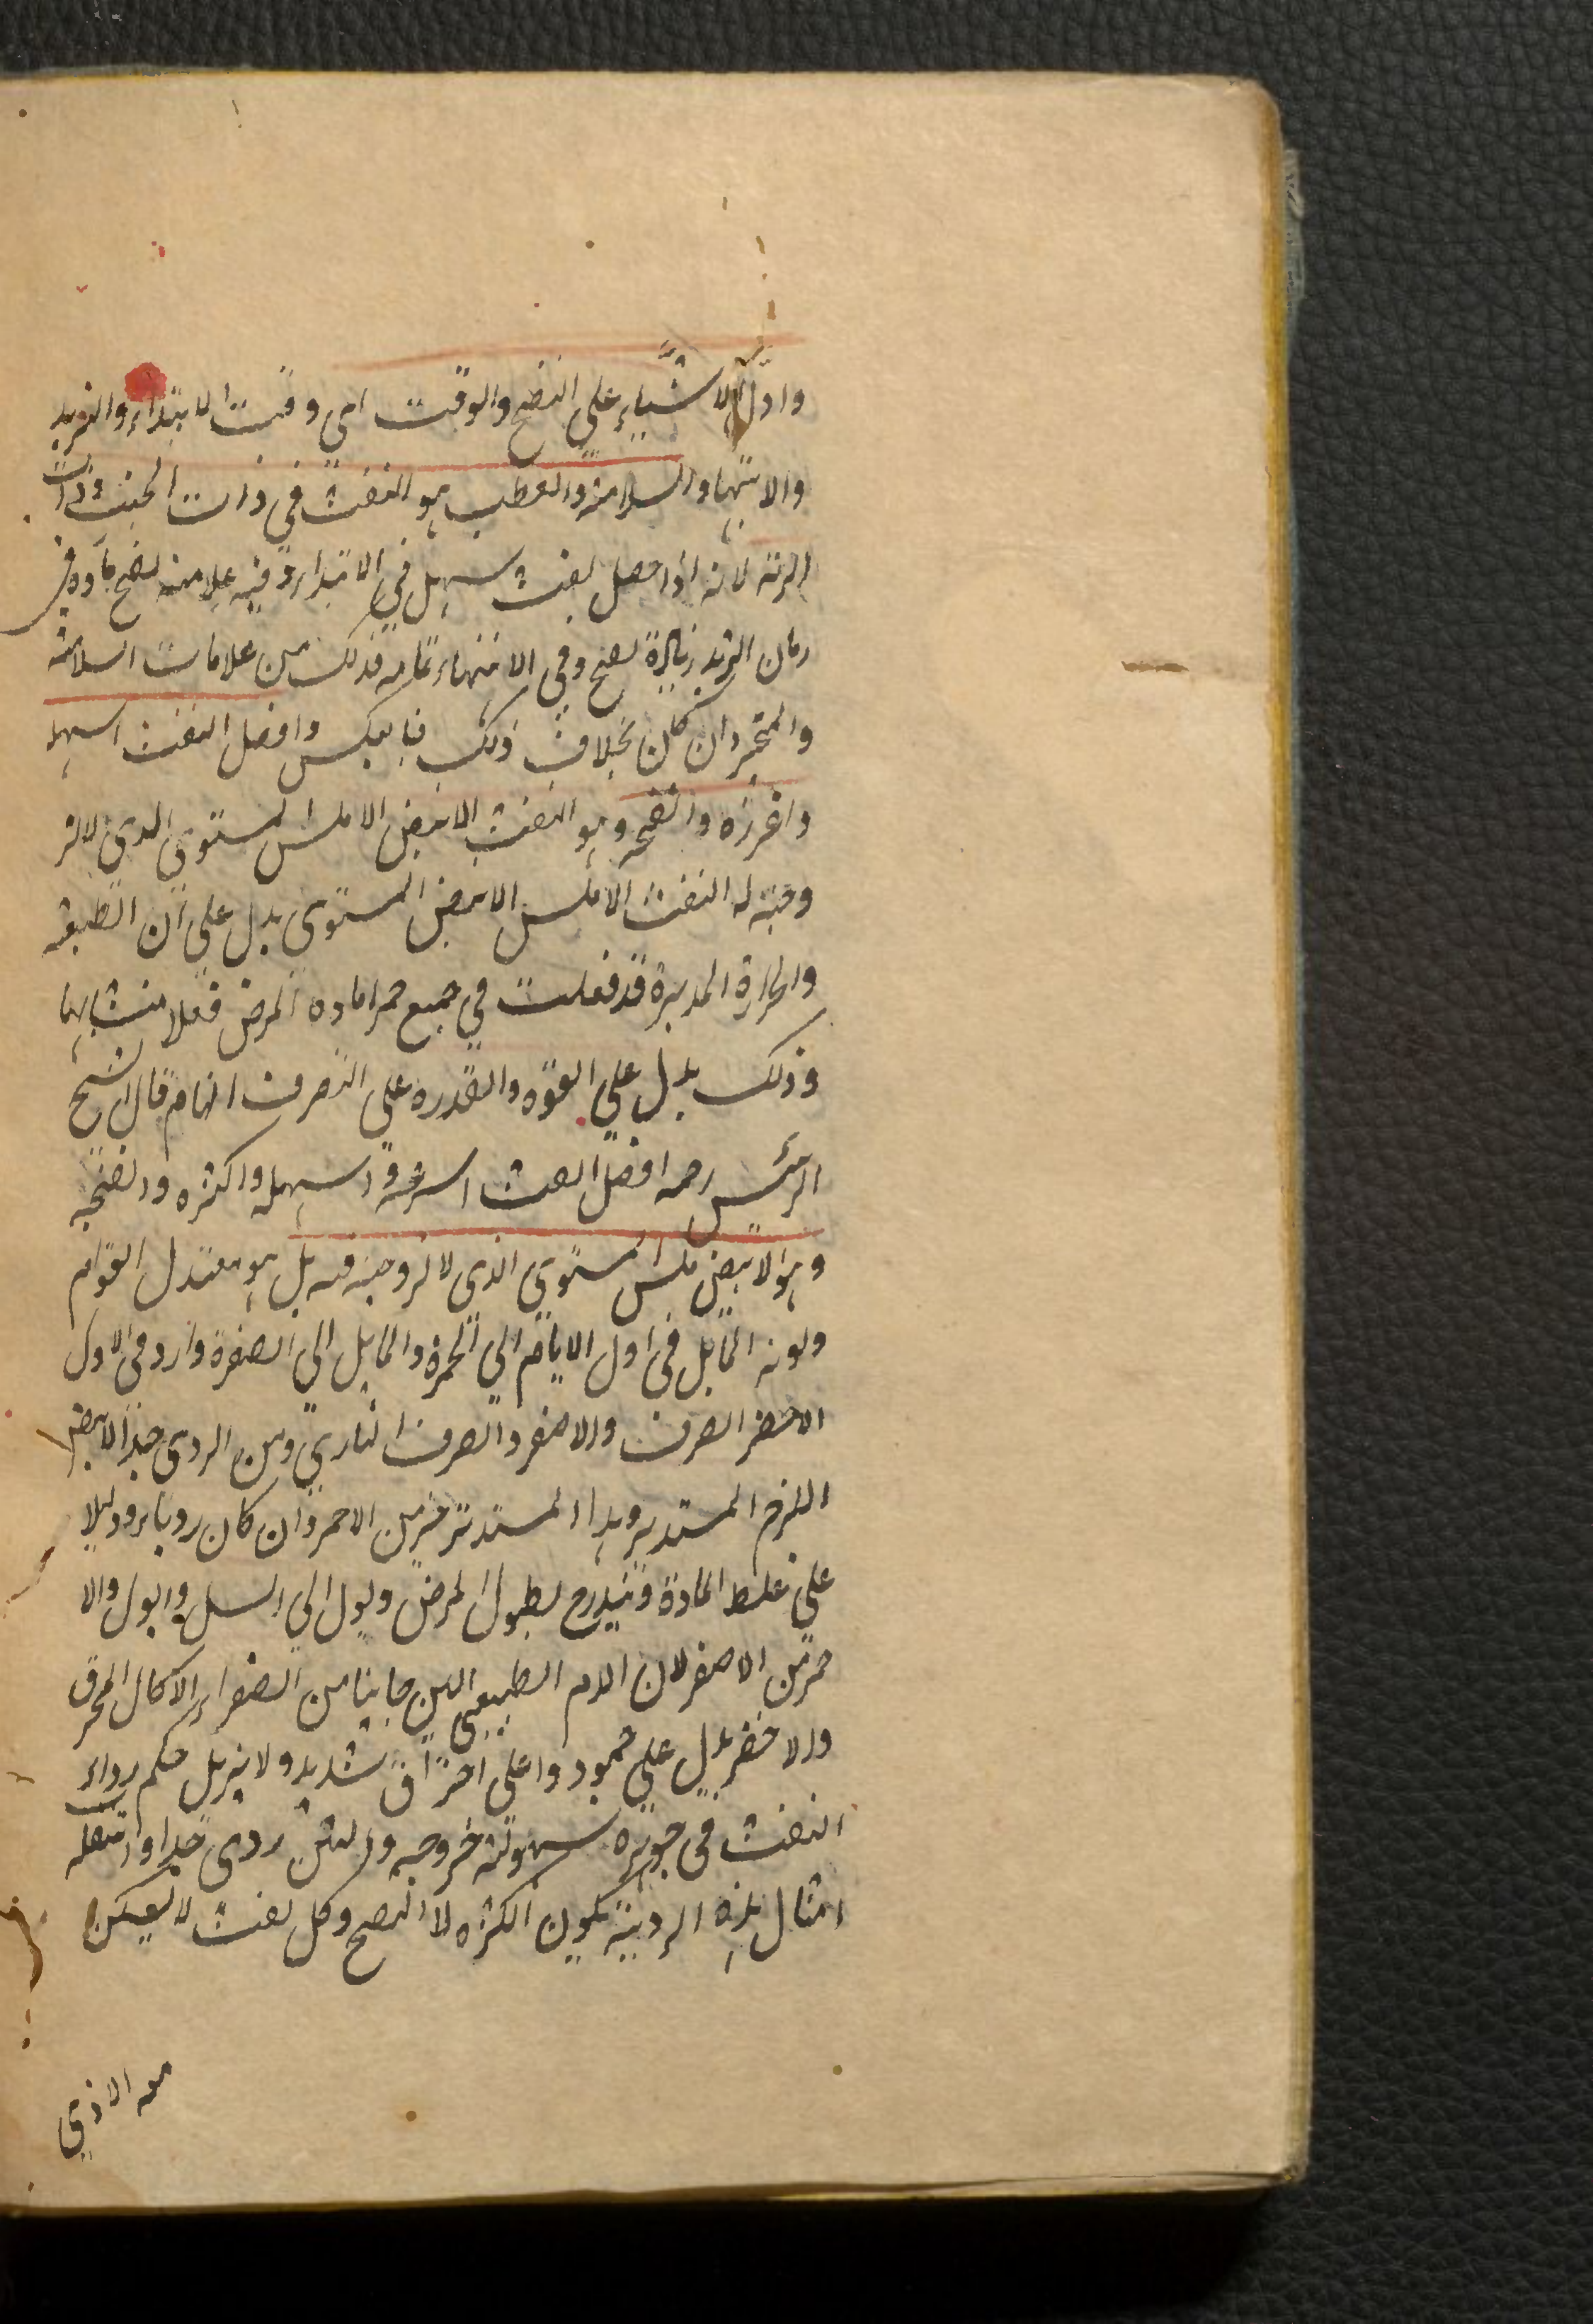 وادل الاشياء على النضج والوقت اى وقت الابتداء والتزيد
والانتهاء والسلامة والعطب هو النفث فى ذات الجنب وذات
الرئة لانه اذا حصل نفث سهل فى الابتداء وفيه علامة نضج مادة فى
زمان التزيد زيادة نضج وفى الانتهاء تمامه فذلك من علامات السلامة
وان كان بخلاف ذلك فبالعكس وافضل النفث اسهله
واغزره وانضجه وهو النفث الابيض الاملس المستوى الذى لا لز
وجة له النفث الاملس الابيض المستوى يدل على ان الطبيعة
والحرارة المدبرة قد فعلت فى جميع اجزا مادة المرض فعلا متشابها
وذلك يدل على القوة والقدرة على التصرف التام قال الشيخ
الرئيس رحمه افضل النفث اسرعه واسهله واكثره وانضجه
وهو الابيض املس المستوى الذى لا لزوجة فيه بل هو معتدل القوام
ولونه المايل فى اول الايام الى الحمرة والمايل الى الصفرة وارد فى الاول
الاحمر الصرف والاصفر والصرف النارى ومن الردى جدا الابيض
اللزج المستدير وهذا المستدير خير من الاحمر وان كان رديا ودليلا
على غلظ المادة وينذر بطول المرض ويول الى السل والبول والا
حمر من الاصفر لان الدم الطبيعى الين جانبا من الصفراء الاكال المحرق
والاخضر يدل على جمود وا على احتراق شديد ولا يزيل حكم رداءة
النفث فى جوهره سهولة خروجه والمنتن ردى جدا وانتقاله
امثال هذه الردية يكون للكثرة لا النضج وكل نفث لا يسكن
معه الاذى